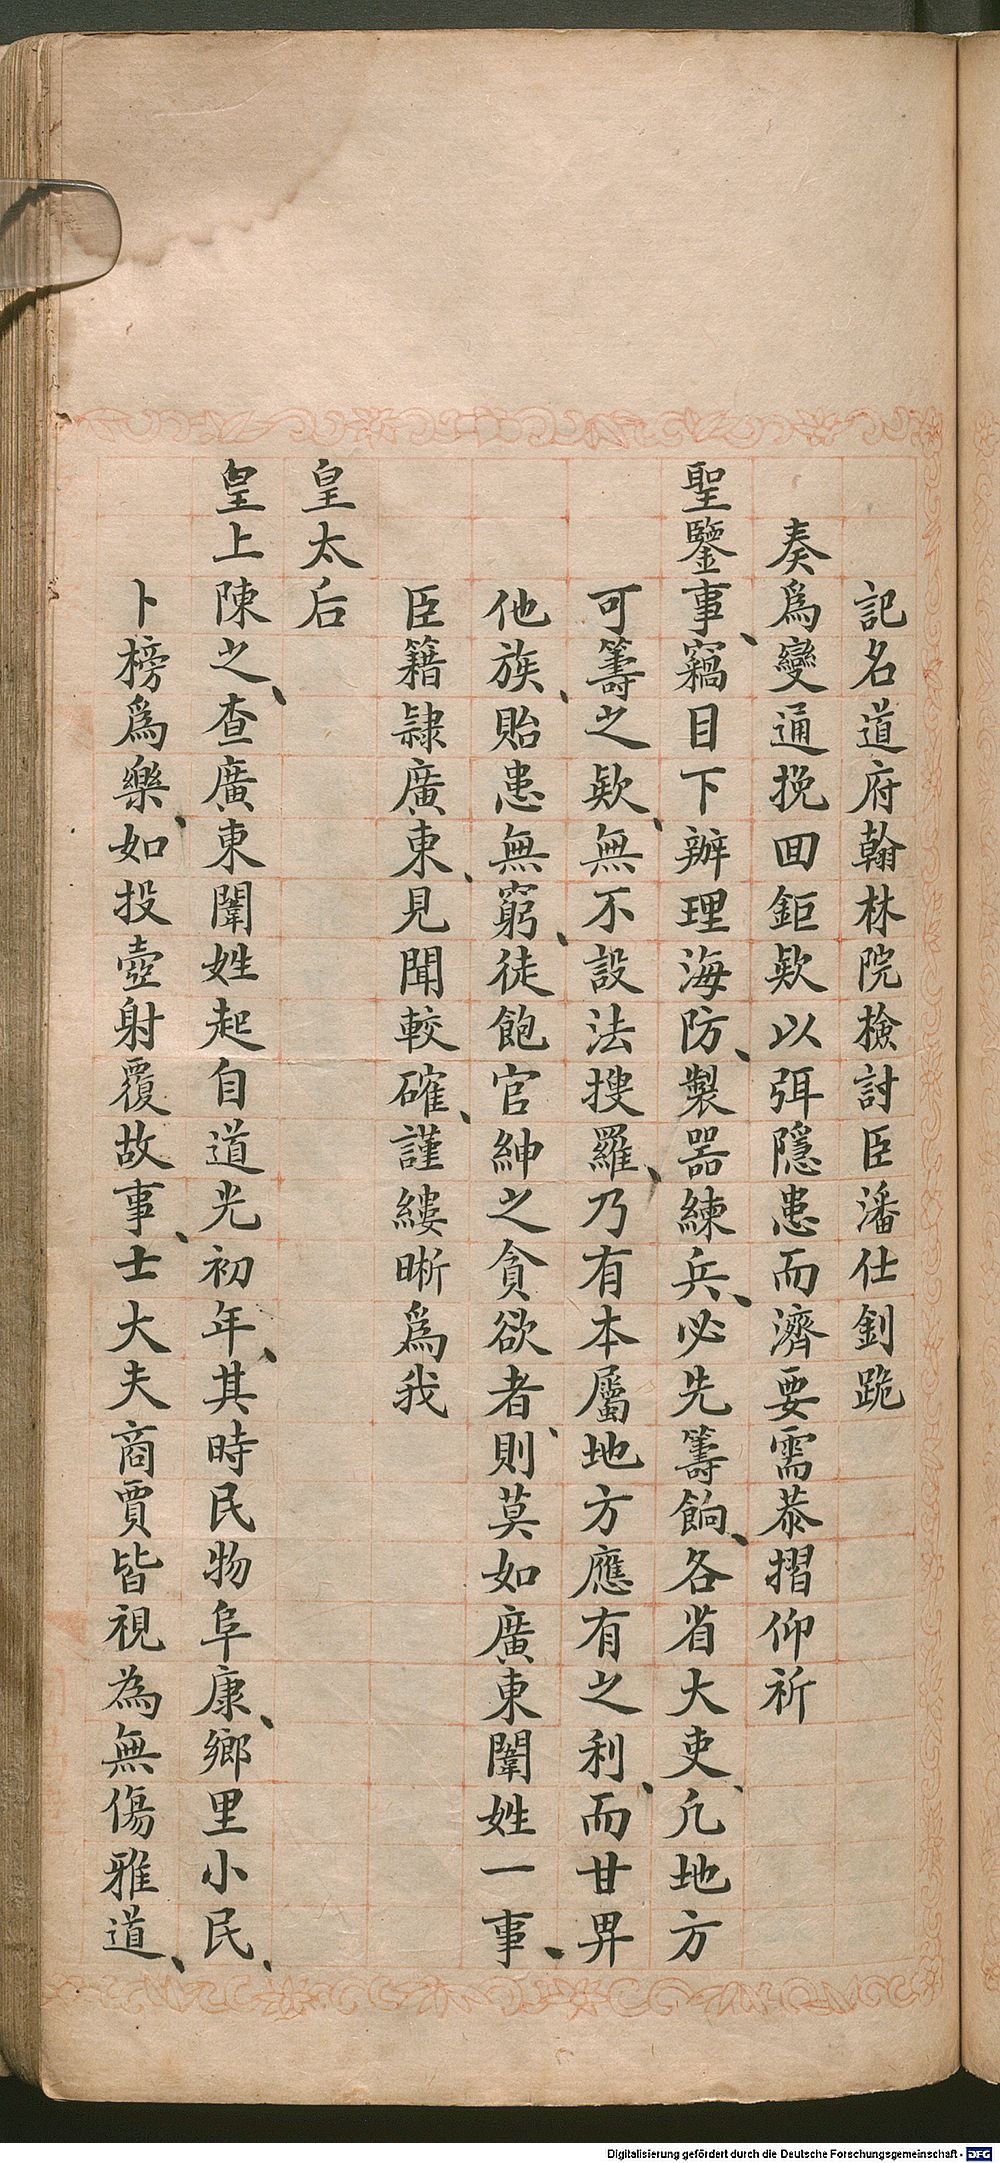 記名道府翰林院檢討臣潘仕釗跪
奏爲變通挽回鉅欵以弭隱患而濟要需恭摺仰祈
聖鑒事、竊目下辦理海防、製器練兵、必先籌餉、各省大吏、凢地方
可籌之欵、無不設法搜羅、乃有本屬地方應有之利、而甘畀
他族、貽患無窮、徒飽官紳之貪欲者、則莫如廣東闈姓一事、
臣籍隷廣東、見聞較確、謹縷晰爲我
皇太后
皇上陳之、查廣東闈姓起自道光初年、其時民物阜康、鄉里小民、
卜榜爲樂、如投壺射覆故事、士大夫商賈皆視為無傷雅道、
Digitalisierung gefördert durch die Deutsche Forschungsgemeinschaft - DFG